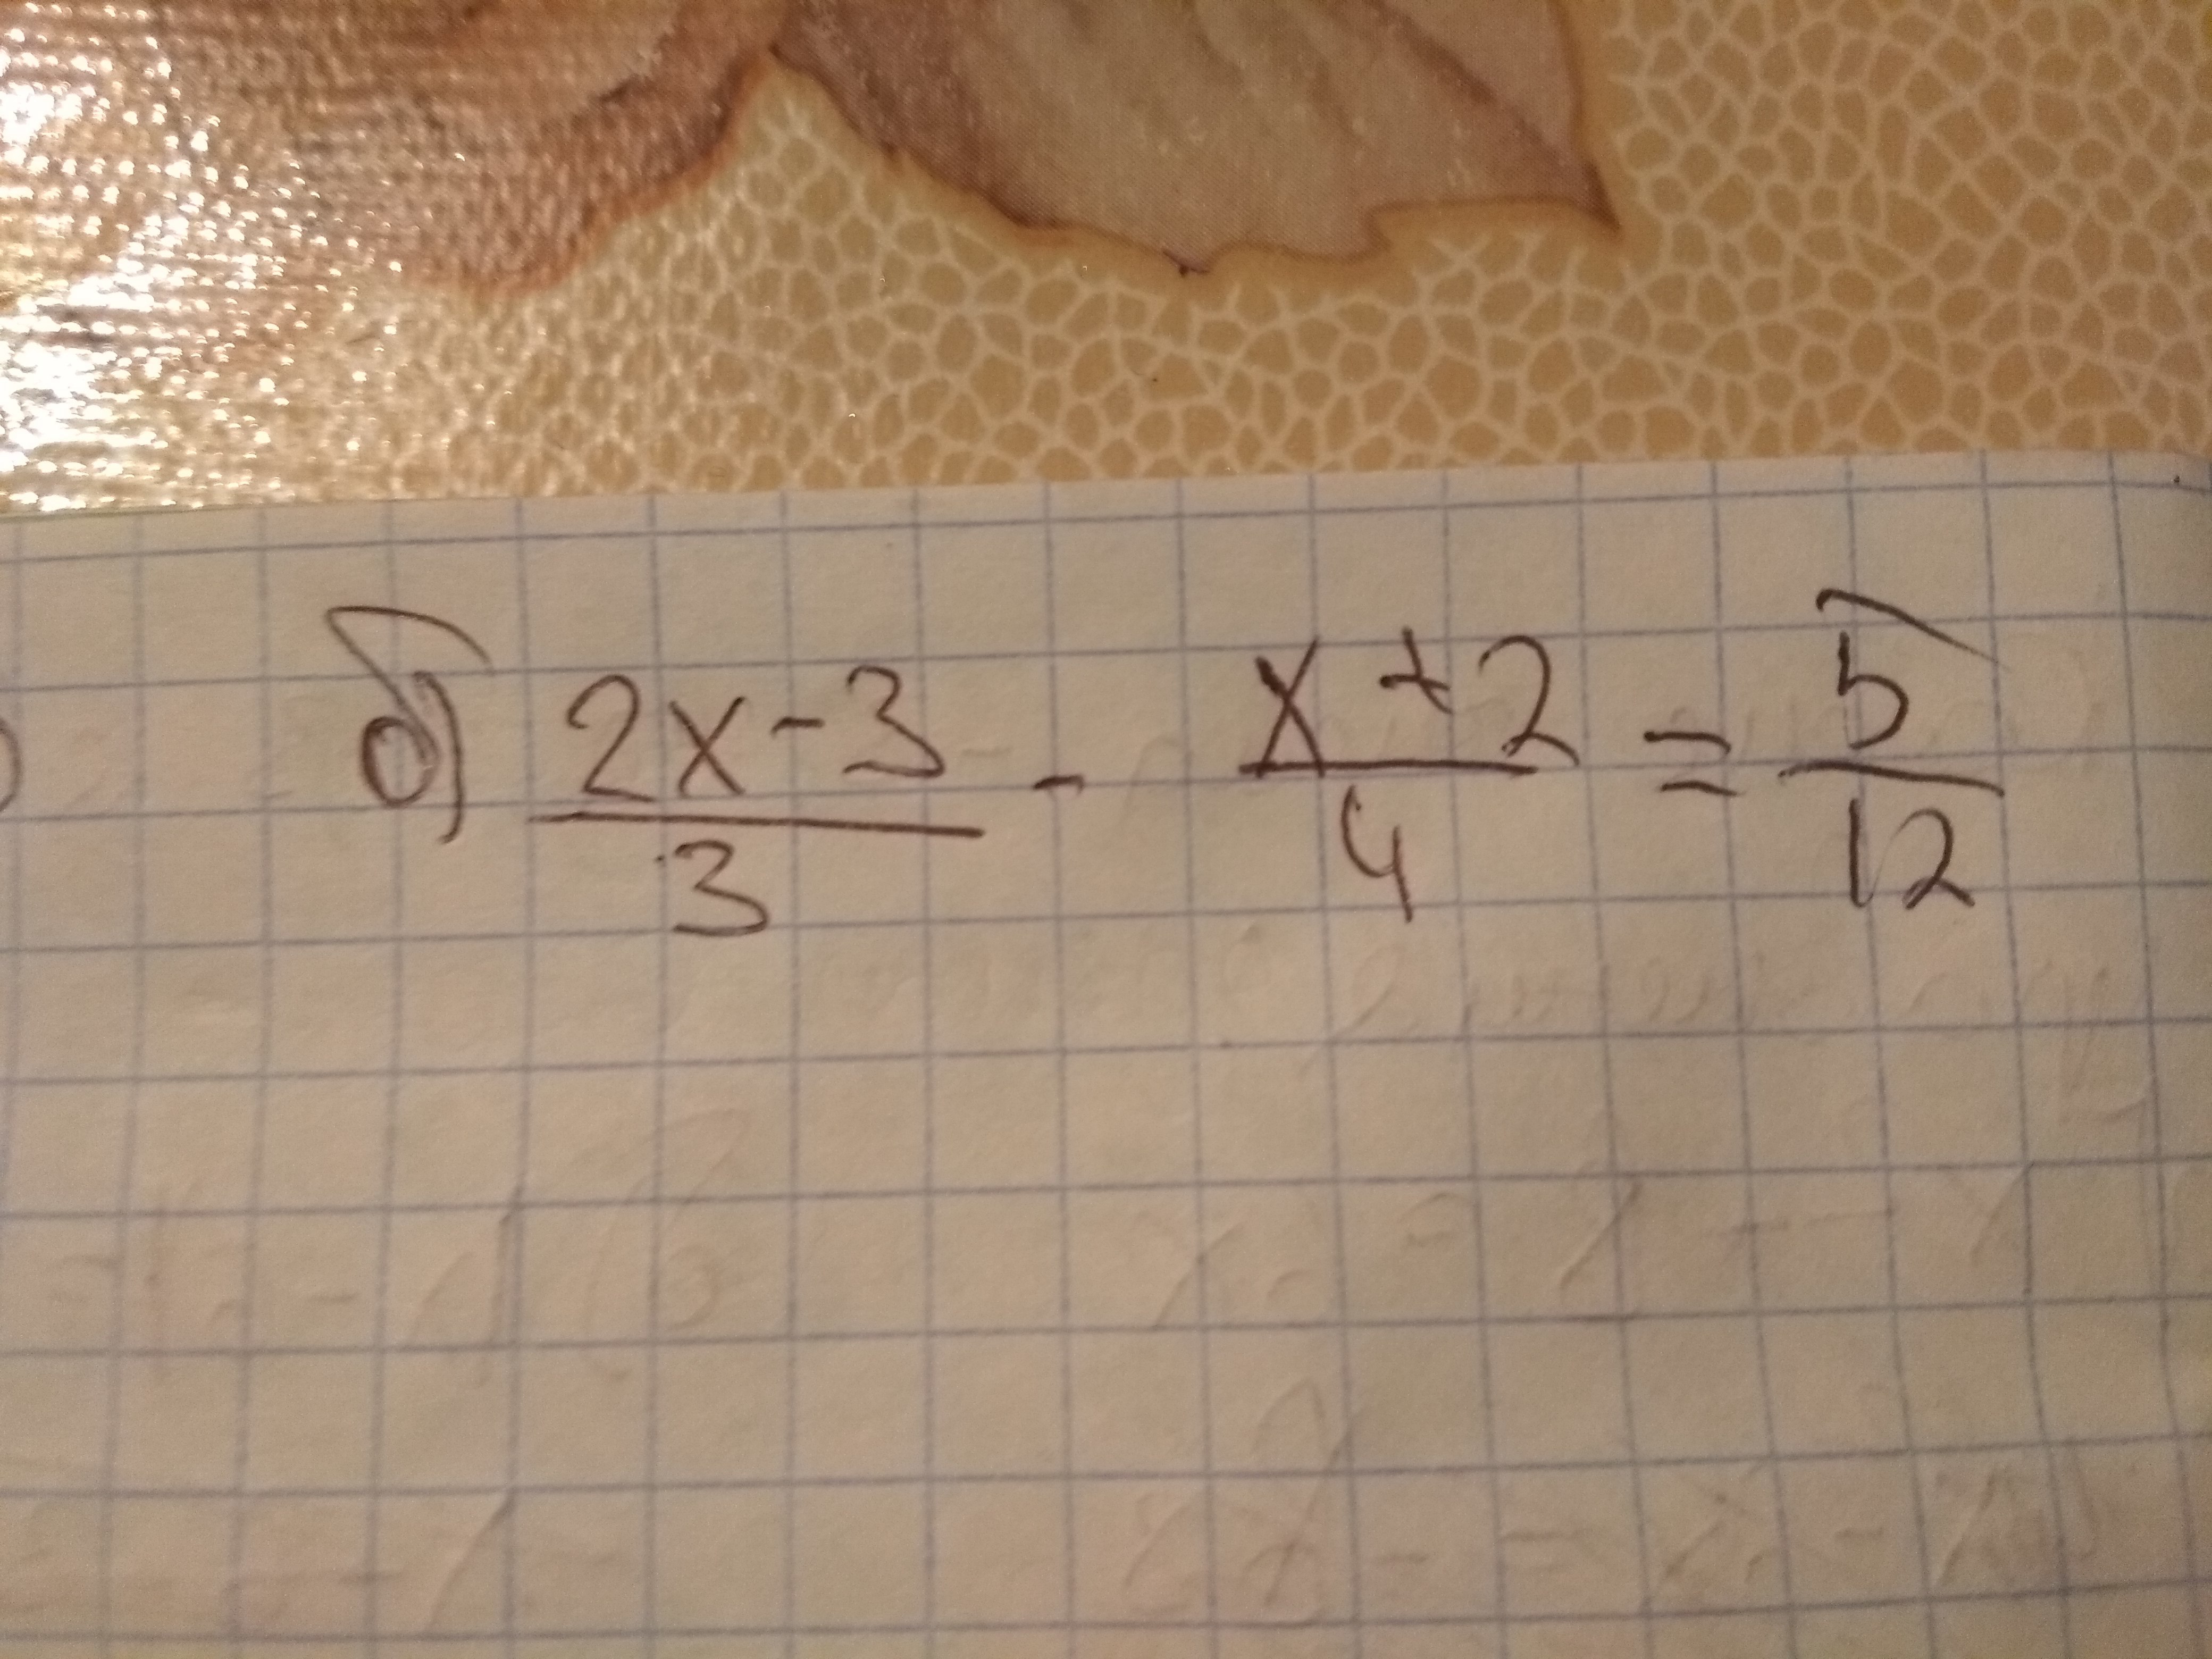 б) (2x-3)/3 - (x+2)/4 = 5/12